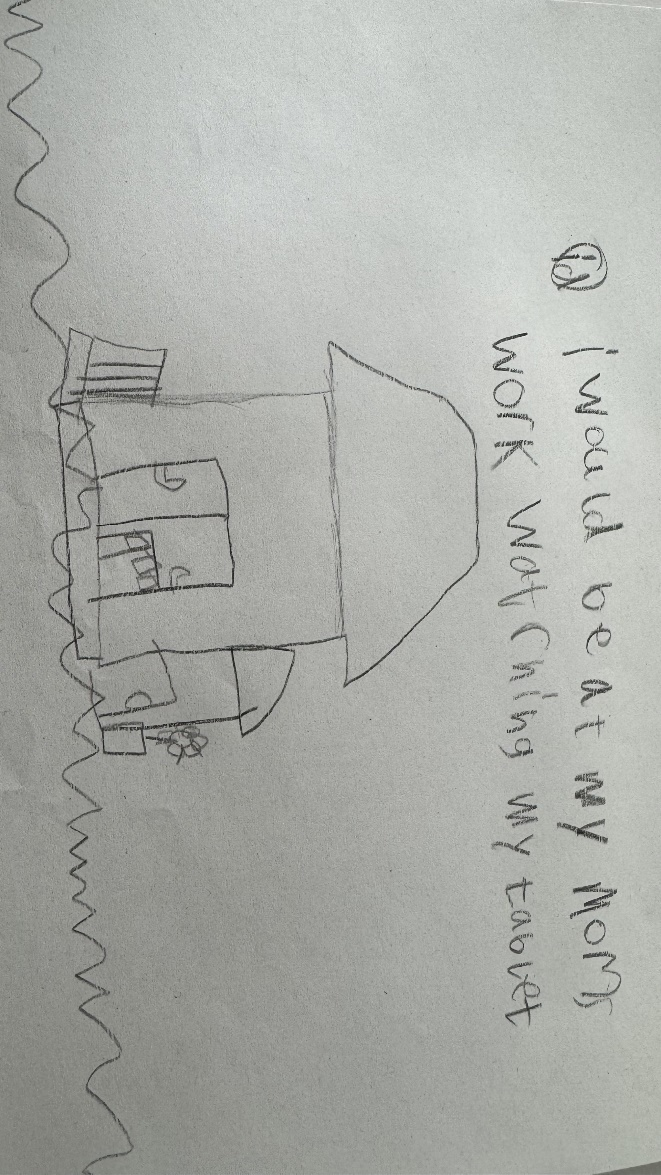 i would be at my moms
work watching my tablet